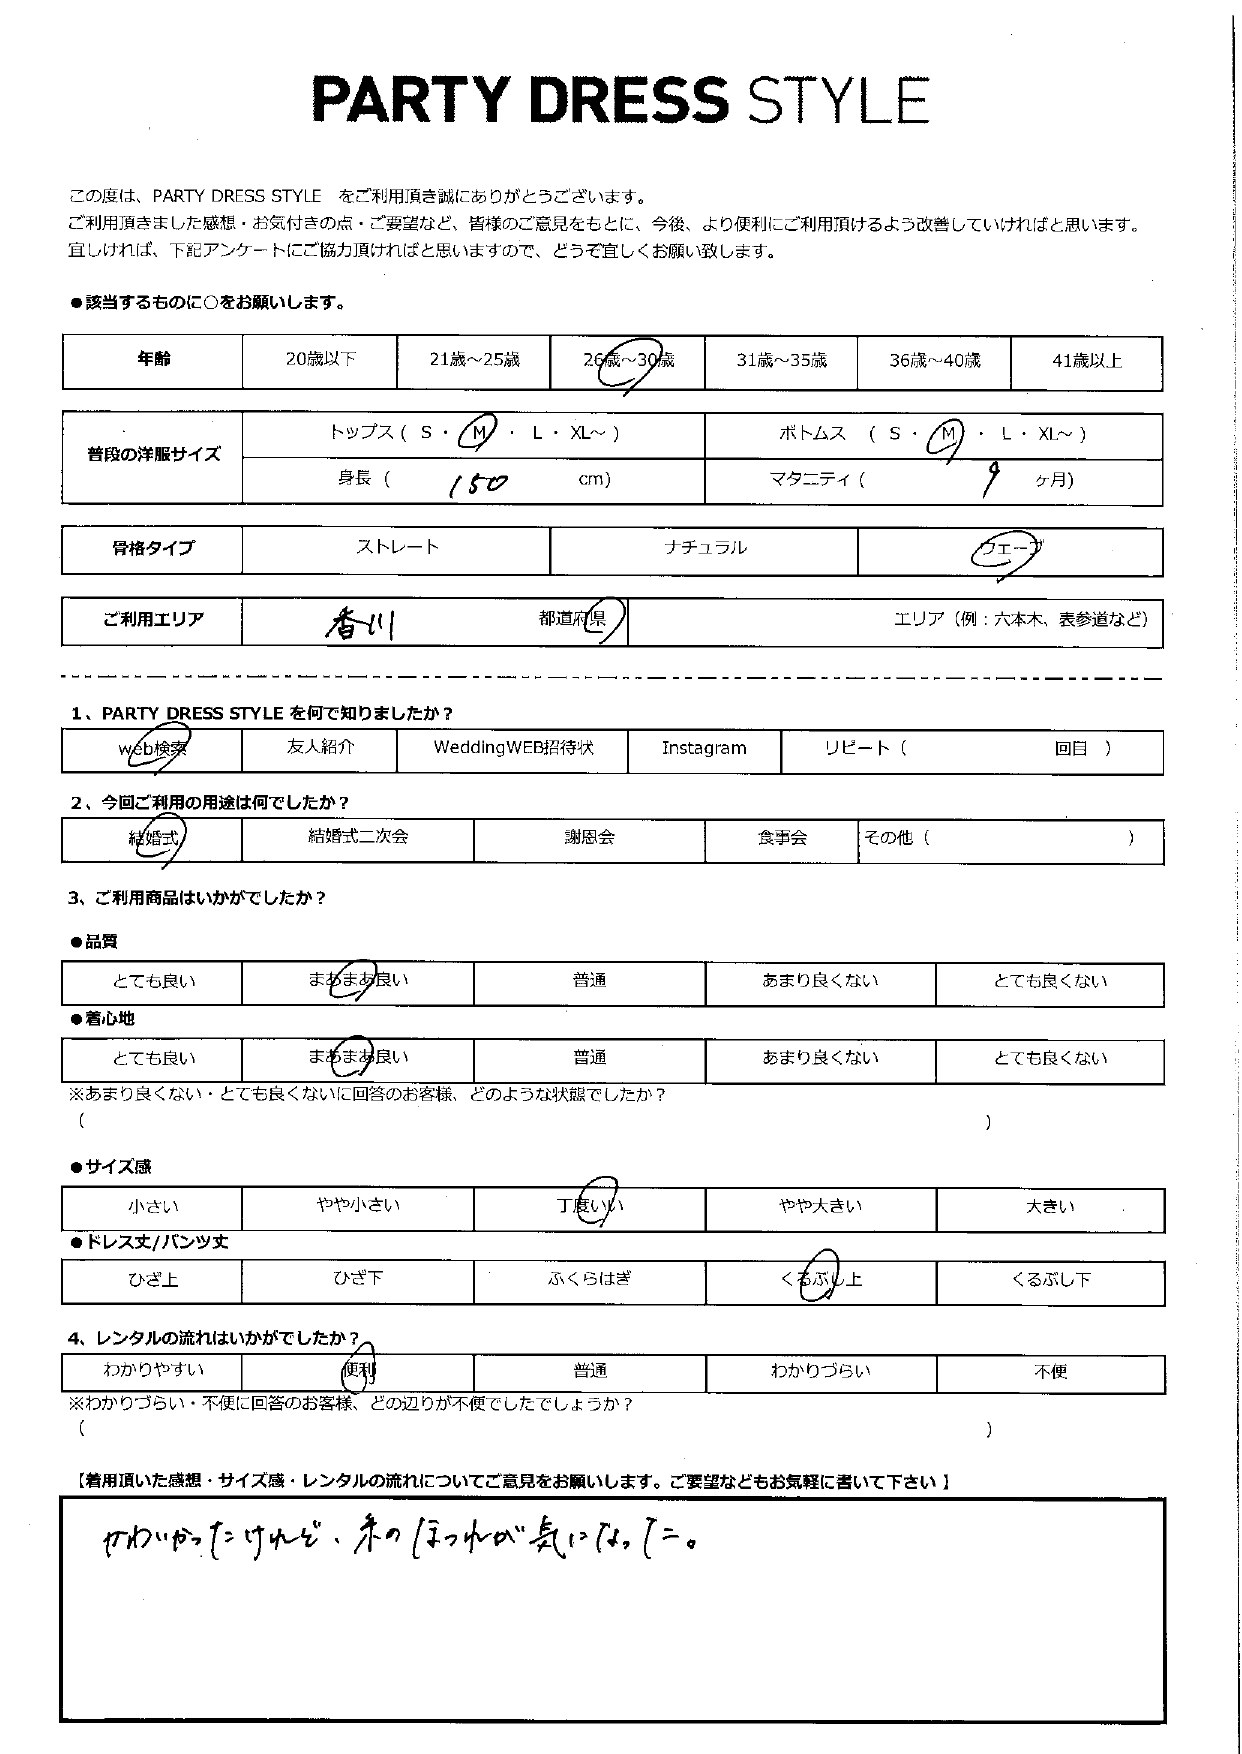 PARTY DRESS STYLE
この度は、PARTY DRESS STYLE をご利用頂き誠にありがとうございます。
ご利用頂きました感想・お気付きの点・ご要望など、皆様のご意見をもとに、今後、より便利にご利用頂けるよう改善していければと思います。
宜しければ、下記アンケートにご協力頂ければと思いますので、どうぞ宜しくお願い致します。
●該当するものに○をお願いします。
年齢 20歳以下 21歳～25歳 26歳～30歳 31歳～35歳 36歳～40歳 41歳以上
普段の洋服サイズ
トップス ( S ・ M ・ L ・ XL～ ) ボトムス ( S ・ M ・ L ・ XL～ )
身長 ( 150 cm) マタニティ ( 9 ヶ月)
骨格タイプ ストレート ナチュラル ウェーブ
ご利用エリア 香川 都道府県 エリア（例：六本木、表参道など）
1、PARTY DRESS STYLE を何で知りましたか？
web検索 友人紹介 WeddingWEB招待状 Instagram リピート（ 回目 ）
2、今回ご利用の用途は何でしたか？
結婚式 結婚式二次会 謝恩会 食事会 その他（ ）
3、ご利用商品はいかがでしたか？
●品質
とても良い まあまあ良い 普通 あまり良くない とても良くない
●着心地
とても良い まあまあ良い 普通 あまり良くない とても良くない
※あまり良くない・とても良くないに回答のお客様、どのような状態でしたか？
（ ）
●サイズ感
小さい やや小さい 丁度いい やや大きい 大きい
●ドレス丈/パンツ丈
ひざ上 ひざ下 ふくらはぎ くるぶし上 くるぶし下
4、レンタルの流れはいかがでしたか？
わかりやすい 便利 普通 わかりづらい 不便
※わかりづらい・不便に回答のお客様、どの辺りが不便でしたでしょうか？
（ ）
【着用頂いた感想・サイズ感・レンタルの流れについてご意見をお願いします。ご要望などもお気軽に書いて下さい】
かわいかったけれど、糸のほつれが気になった。